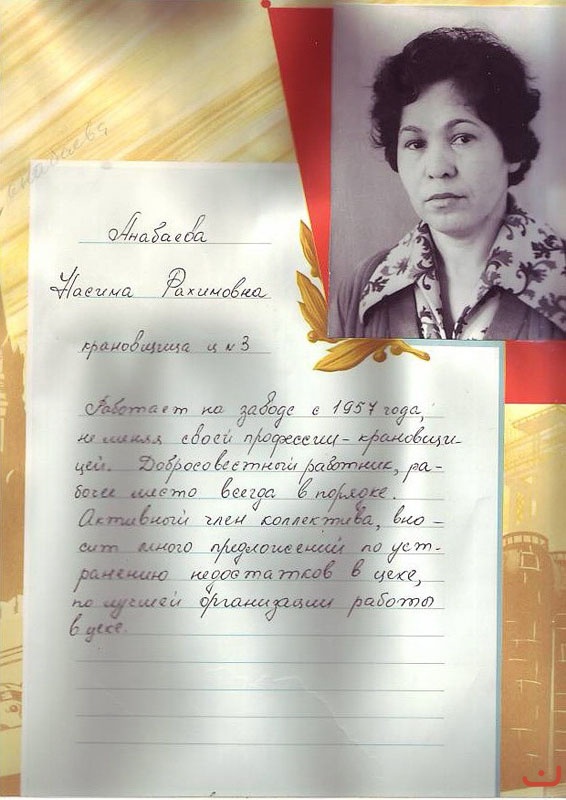 Анабаева
Насима Рахимовна
крановщица ц №3
Работает на заводе с 1957 года,
не меняя своей профессии - крановщи-
цей. Добросовестный работник, ра-
бочее место всегда в порядке.
Активный член коллектива, вно-
сит много предложений по уст-
ранению недостатков в цехе,
по лучшей организации работы
в цехе.